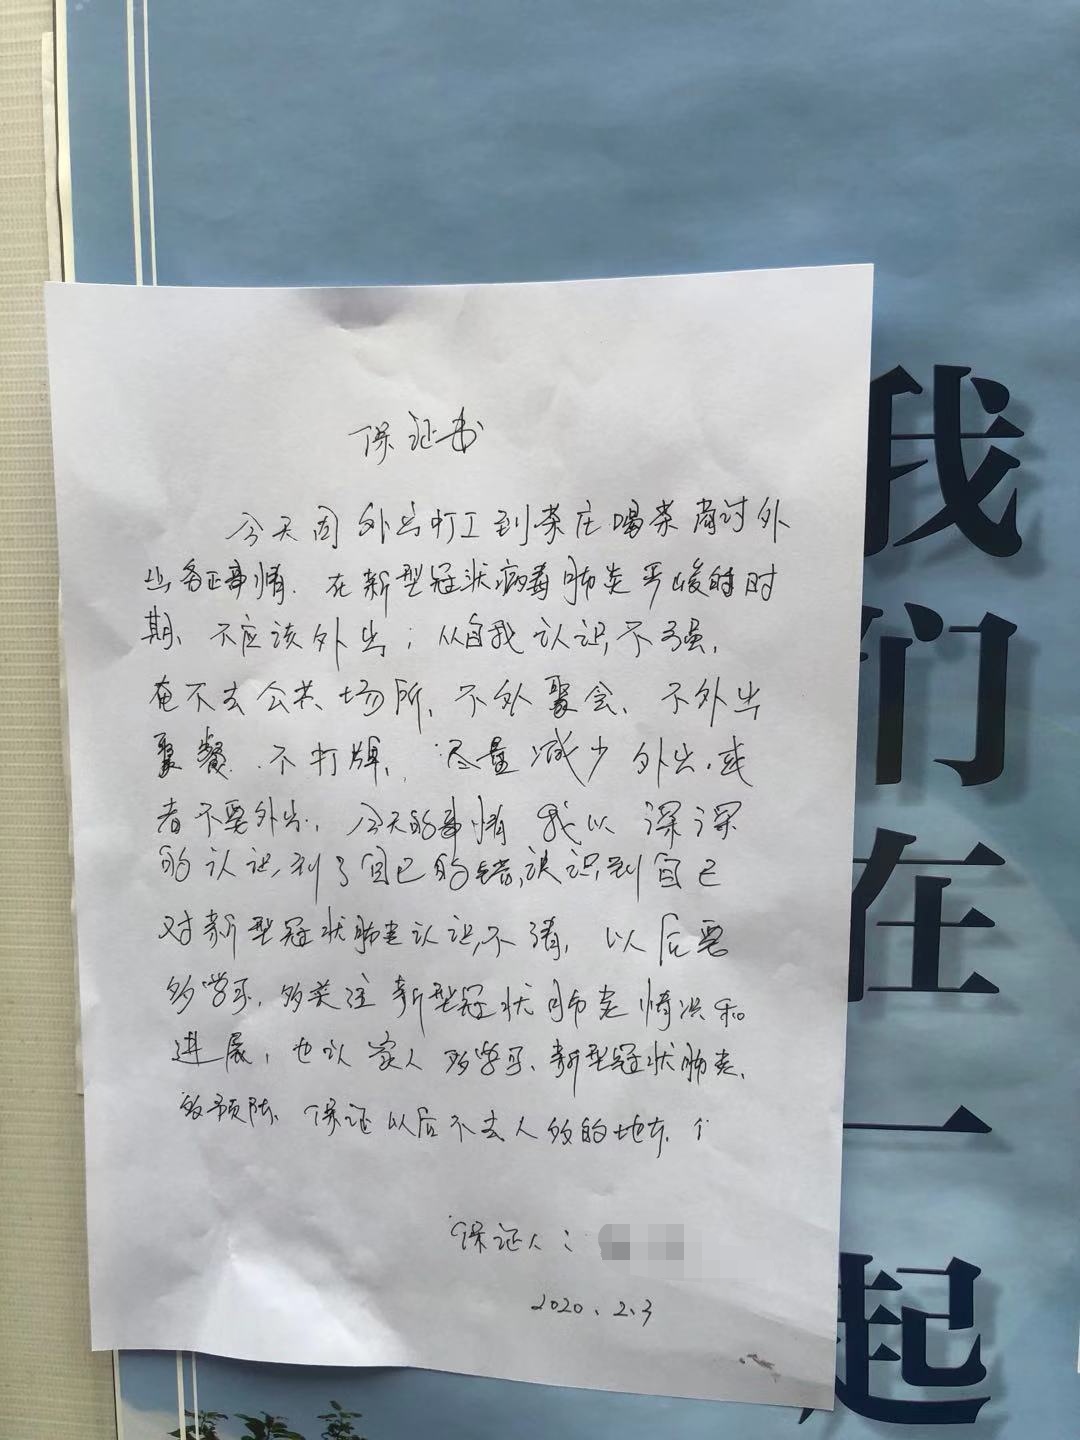 保证书
今天因外出打工到茶庄喝茶商讨外
出务工事情.在新型冠状病毒肺炎严峻的时
期、不应该外出;从自我认识不强,
不去公共场所、不外聚会、不外出
聚餐.不打牌,尽量减少外出.或
者不要外出,今天的事情 我以深深
的认识到了自己的错误,识到自己
对新型冠状肺炎认识不清,以后要
多学习,多关注新型冠状肺炎情况和
进展,也让家人多学习、新型冠状肺炎.
的预防.保证以后不去人多的地方.
保证人:
2020.2.3
我们在一起